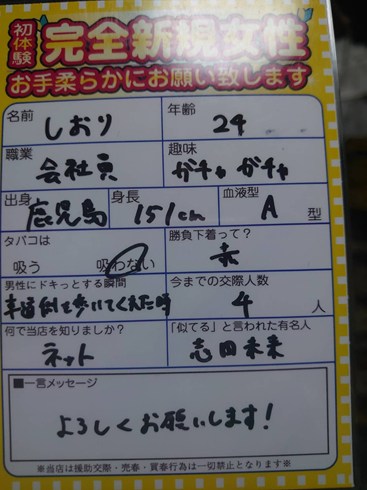 初体験 完全新規女性
お手柔らかにお願い致します
名前 しおり 年齢 24
職業 会社員 趣味 ガチャガチャ
出身 鹿児島 身長 151cm 血液型 A 型
タバコは 吸う 吸わない 勝負下着って? 赤
男性にドキっとする瞬間 車道側を歩いてくれた時 今までの交際人数 4 人
何で当店を知りましたか? ネット 「似てる」と言われた有名人 志田未来
■一言メッセージ
よろしくお願いします!
※当店は援助交際・売春・買春行為は一切禁止となります※